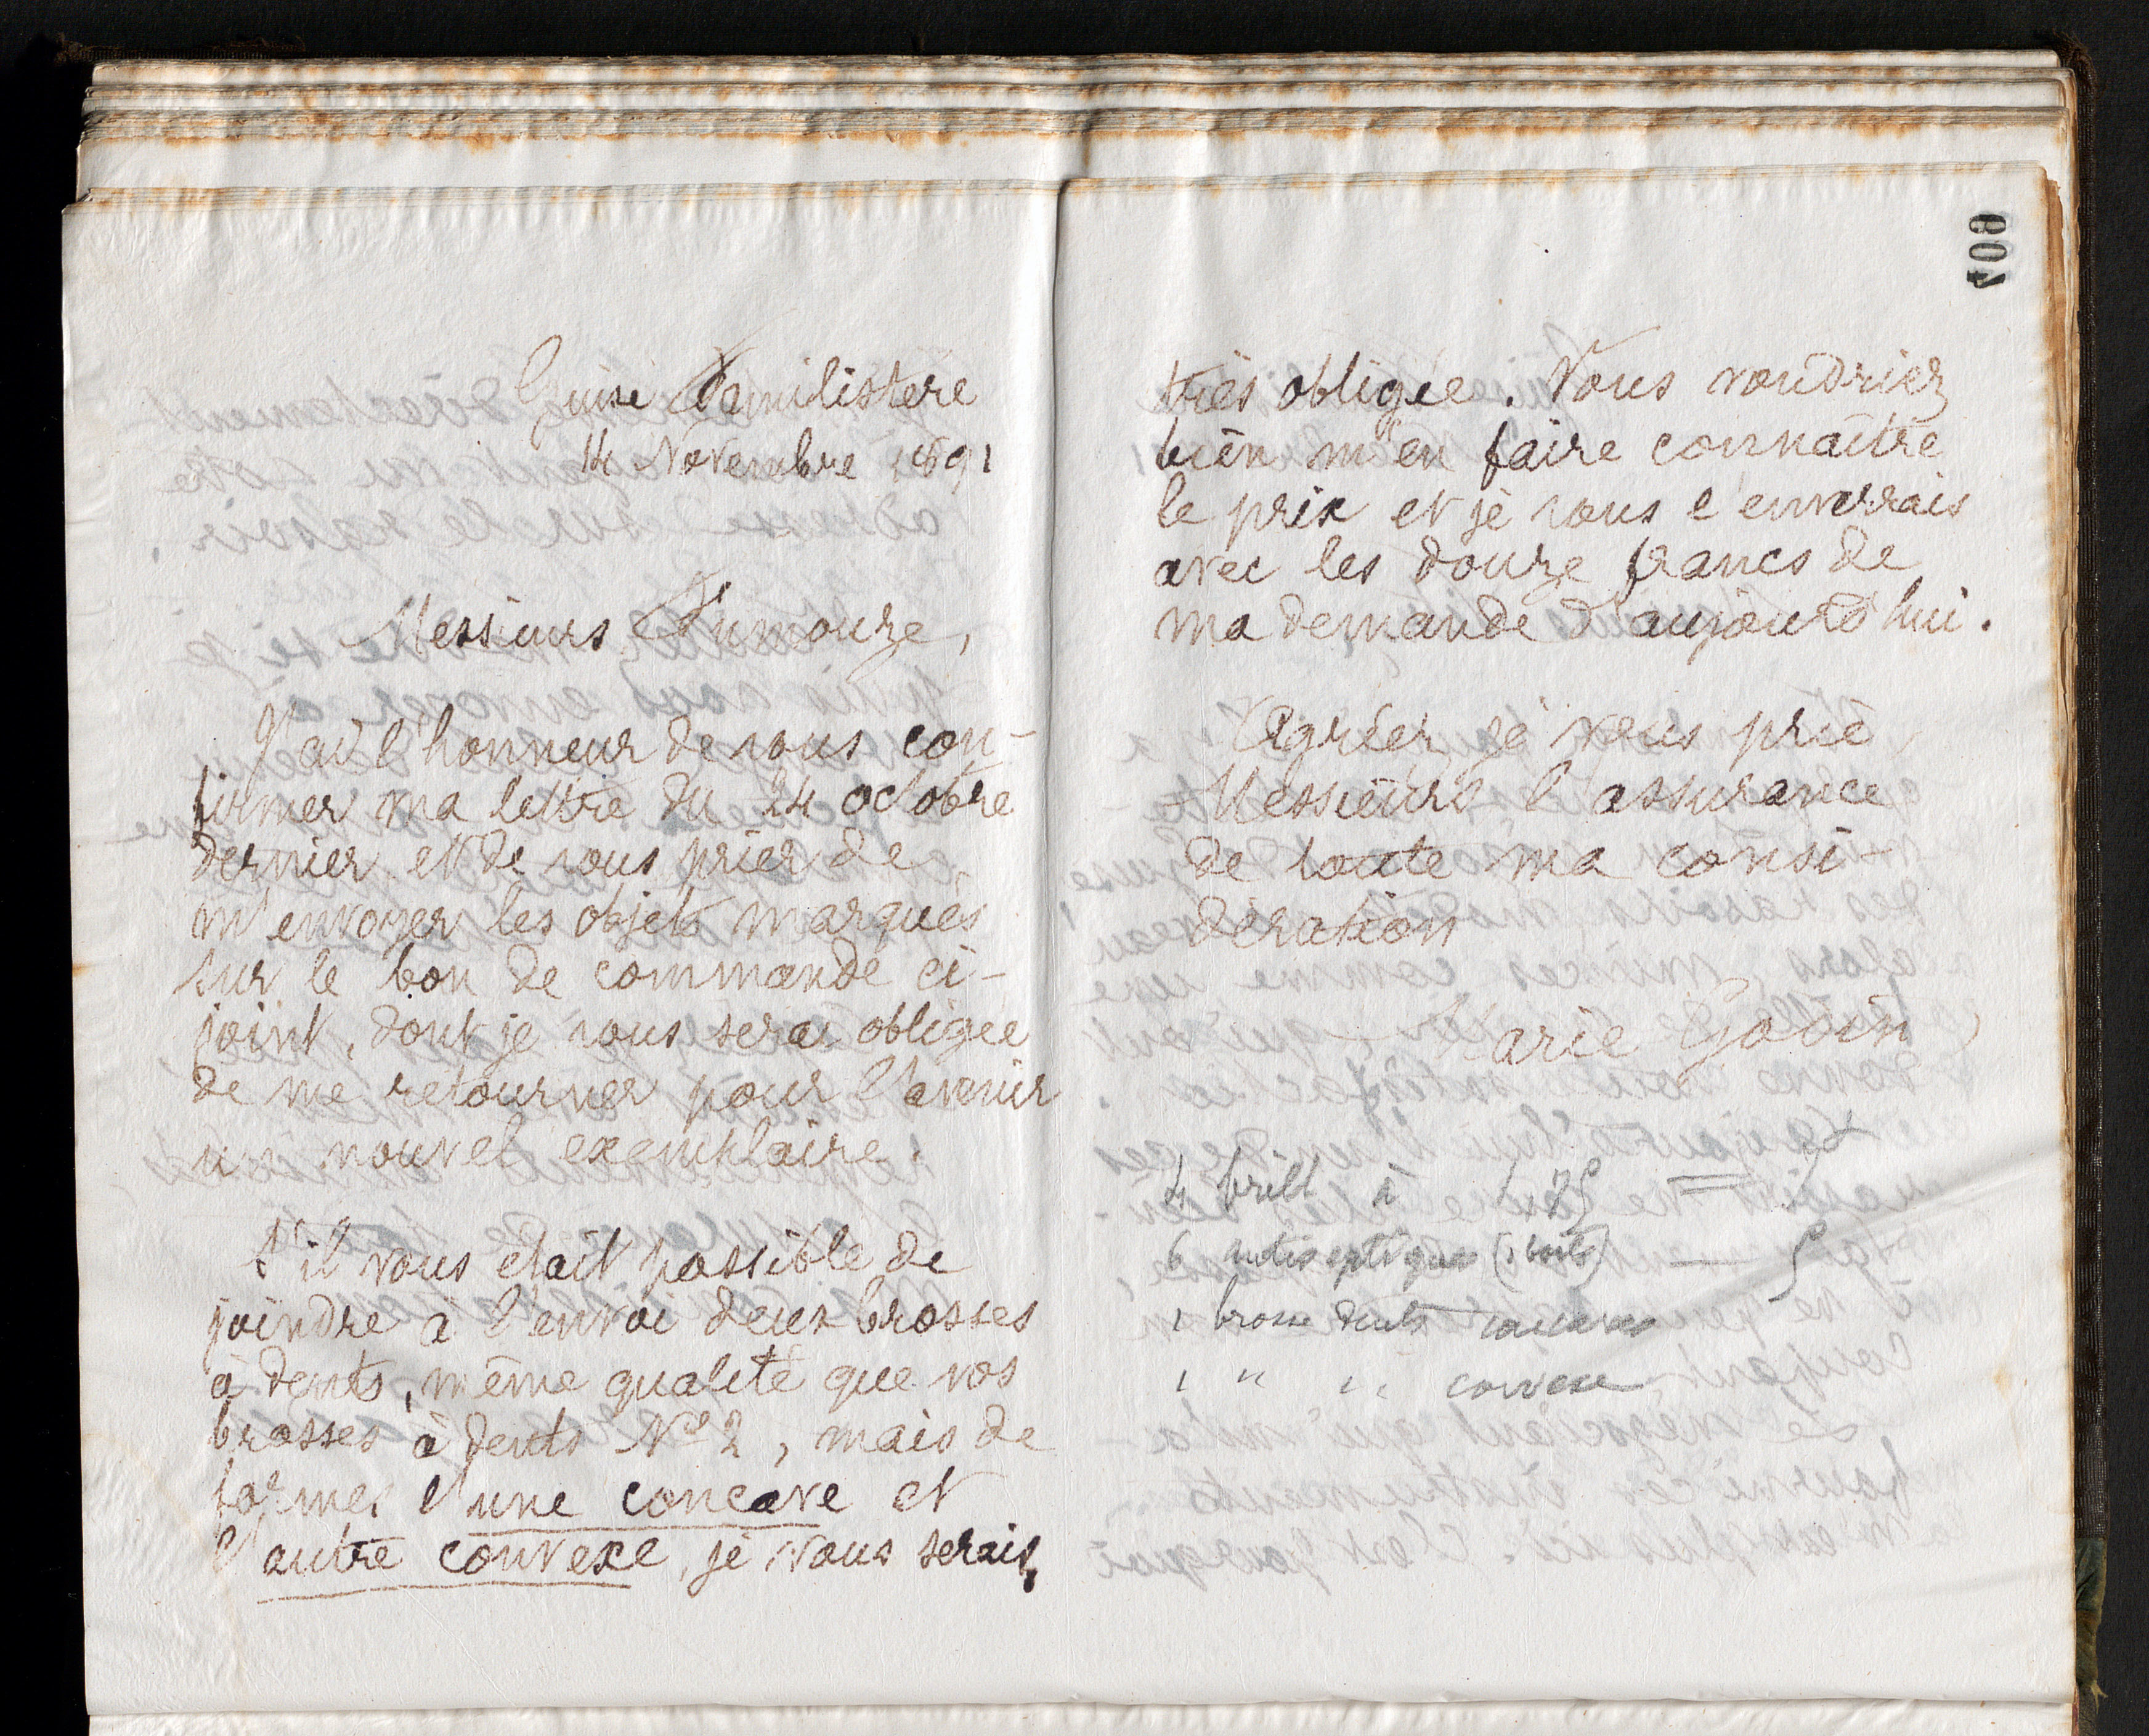 Guise Familistère
14 Novembre 1891
Messieurs Fumouze,
J'ai l'honneur de vous con-
firmer ma lettre du 24 octobre
dernier et de vous prier de
m'envoyer les objets marqués
sur le bon de commande ci-
joint, dont je vous serai obligée
de me retourner pour l'avenir
un nouvel exemplaire.
S'il vous était possible de
joindre à l'envoi deux brosses
à dents, même qualité que vos
brosses à dents No 2, mais de
formes l'une concave et
l'autre convexe, je vous serais
408
très obligée. Vous voudriez
bien m'en faire connaître
le prix et je vous l'enverrais
avec les douze francs de
ma demande d'aujourd'hui.
Agréez, je vous prie,
Messieurs l'assurance
de toute ma consi-
dération
Marie Godin
4 brill à 1 75 = 7
6 antiseptiques — 5
1 brosse dents concaves
1 " " convexe